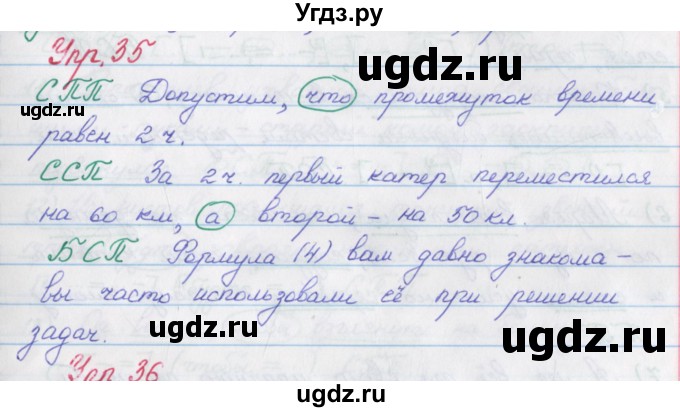 Угдз.ру
Упр. 35
СПП Допустим, что промежуток времени
равен 2 ч.
ССП За 2 ч. первый катер переместился
на 60 км, а второй – на 50 кл.
БСП Формула (4) вам давно знакома –
вы часто использовали её при решении
задач.
Упр. 36
ugdz.ru
ugdz.ru
ugdz.ru
ugdz.ru
ugdz.ru
ugdz.ru
ugdz.ru